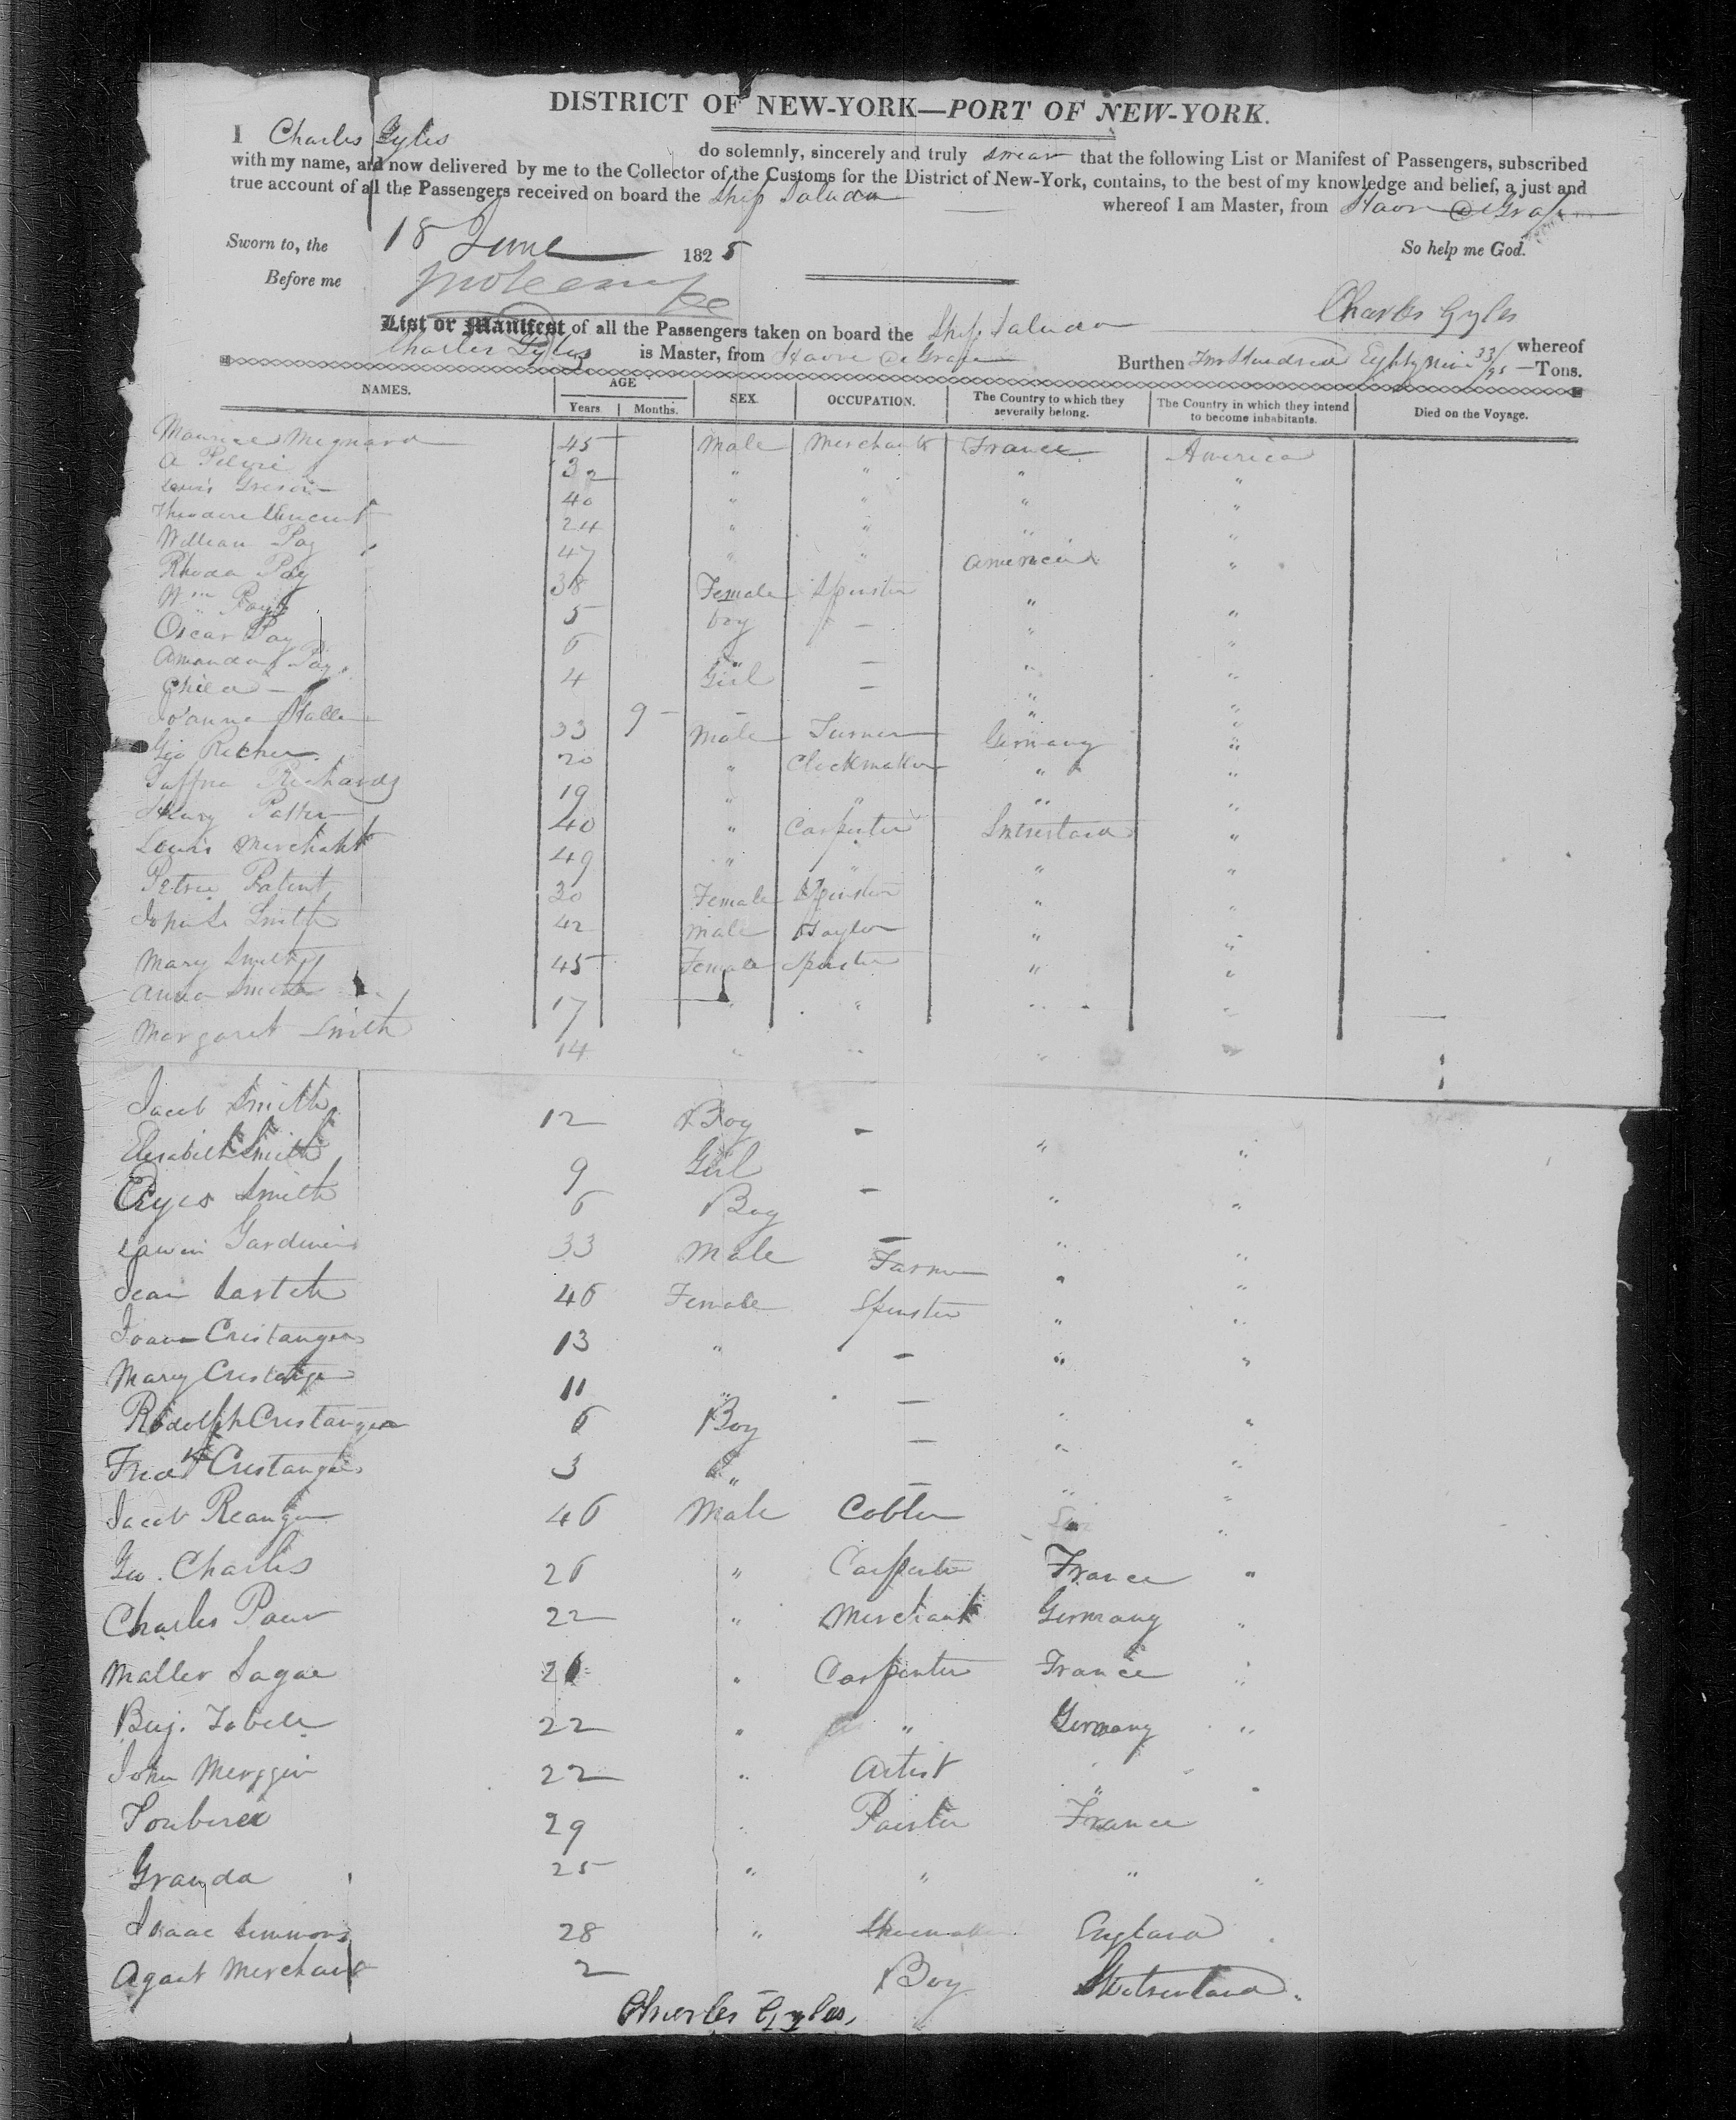 DISTRICT OF NEW-YORK—PORT OF NEW-YORK.
I Charles Gyles do solemnly, sincerely and truly swear that the following List or Manifest of Passengers, subscribed
with my name, and now delivered by me to the Collector of the Customs for the District of New-York, contains, to the best of my knowledge and belief, a just and
true account of all the Passengers received on board the Ship Saluda whereof I am Master, from Havre de Grace
Sworn to, the 18 June 1825 So help me God.
Before me
Charles Gyles
List or Manifest of all the Passengers taken on board the Ship Saluda whereof
Charles Gyles is Master, from Havre de Grace Burthen Two Hundred Eighty Nine 33/95 —Tons.
NAMES. AGE SEX. OCCUPATION. The Country to which they severally belong. The Country in which they intend to become inhabitants. Died on the Voyage.
Years Months.
Maurice Mignard 45 Male Merchants France America
A 32 " " " "
Lewis 40 " " " "
Theodore Vincent 24 " " " "
William Pay 47 " " American "
Rhoda Pay 38 Female Spinster " "
Wm Pay 5 boy — " "
Oscar Pay 6 " — " "
Amanda Pay 4 Girl — " "
Child — 9 — — " "
Joanna 33 Male Turner Germany "
Geo 20 " Clockmaker " "
Richards 19 " " " "
Henry 40 " Carpenter Switserland "
Louis Merchant 49 " " " "
Petrie Patent 30 Female Spinster " "
Smith 42 Male Taylor " "
Mary Smith 45 Female Spinster " "
Anna Smith 17 " " " "
Margaret Smith 14 " " " "
Jacob Smith 12 Boy — " "
Elisabeth Smith 9 Girl — " "
Smith 6 Boy — " "
Gardiner 33 Male Farmer " "
Jean 46 Female Spinster " "
Joann Cristanger 13 " — " "
Mary Cristanger 11 " — " "
Rodolph Cristanger 6 Boy — " "
Fredk Cristanger 3 " — " "
Jacob Reanger 46 Male Cobler "
Geo. Charles 26 " Carpenter France "
Charles 22 " Merchant Germany "
Maller 26 " Carpenter France "
Benj. 22 " " Germany "
John 22 " Artist " "
29 " Painter France
Granda 25 " " " "
Isaac Simmons 28 " Shoemaker England
Agart Merchant 2 Boy Switserland.
Charles Gyles,